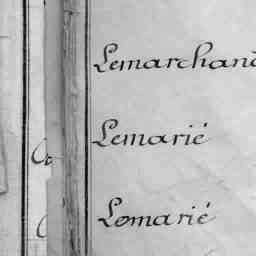 Lemarchand
Lemarié
Lomarié